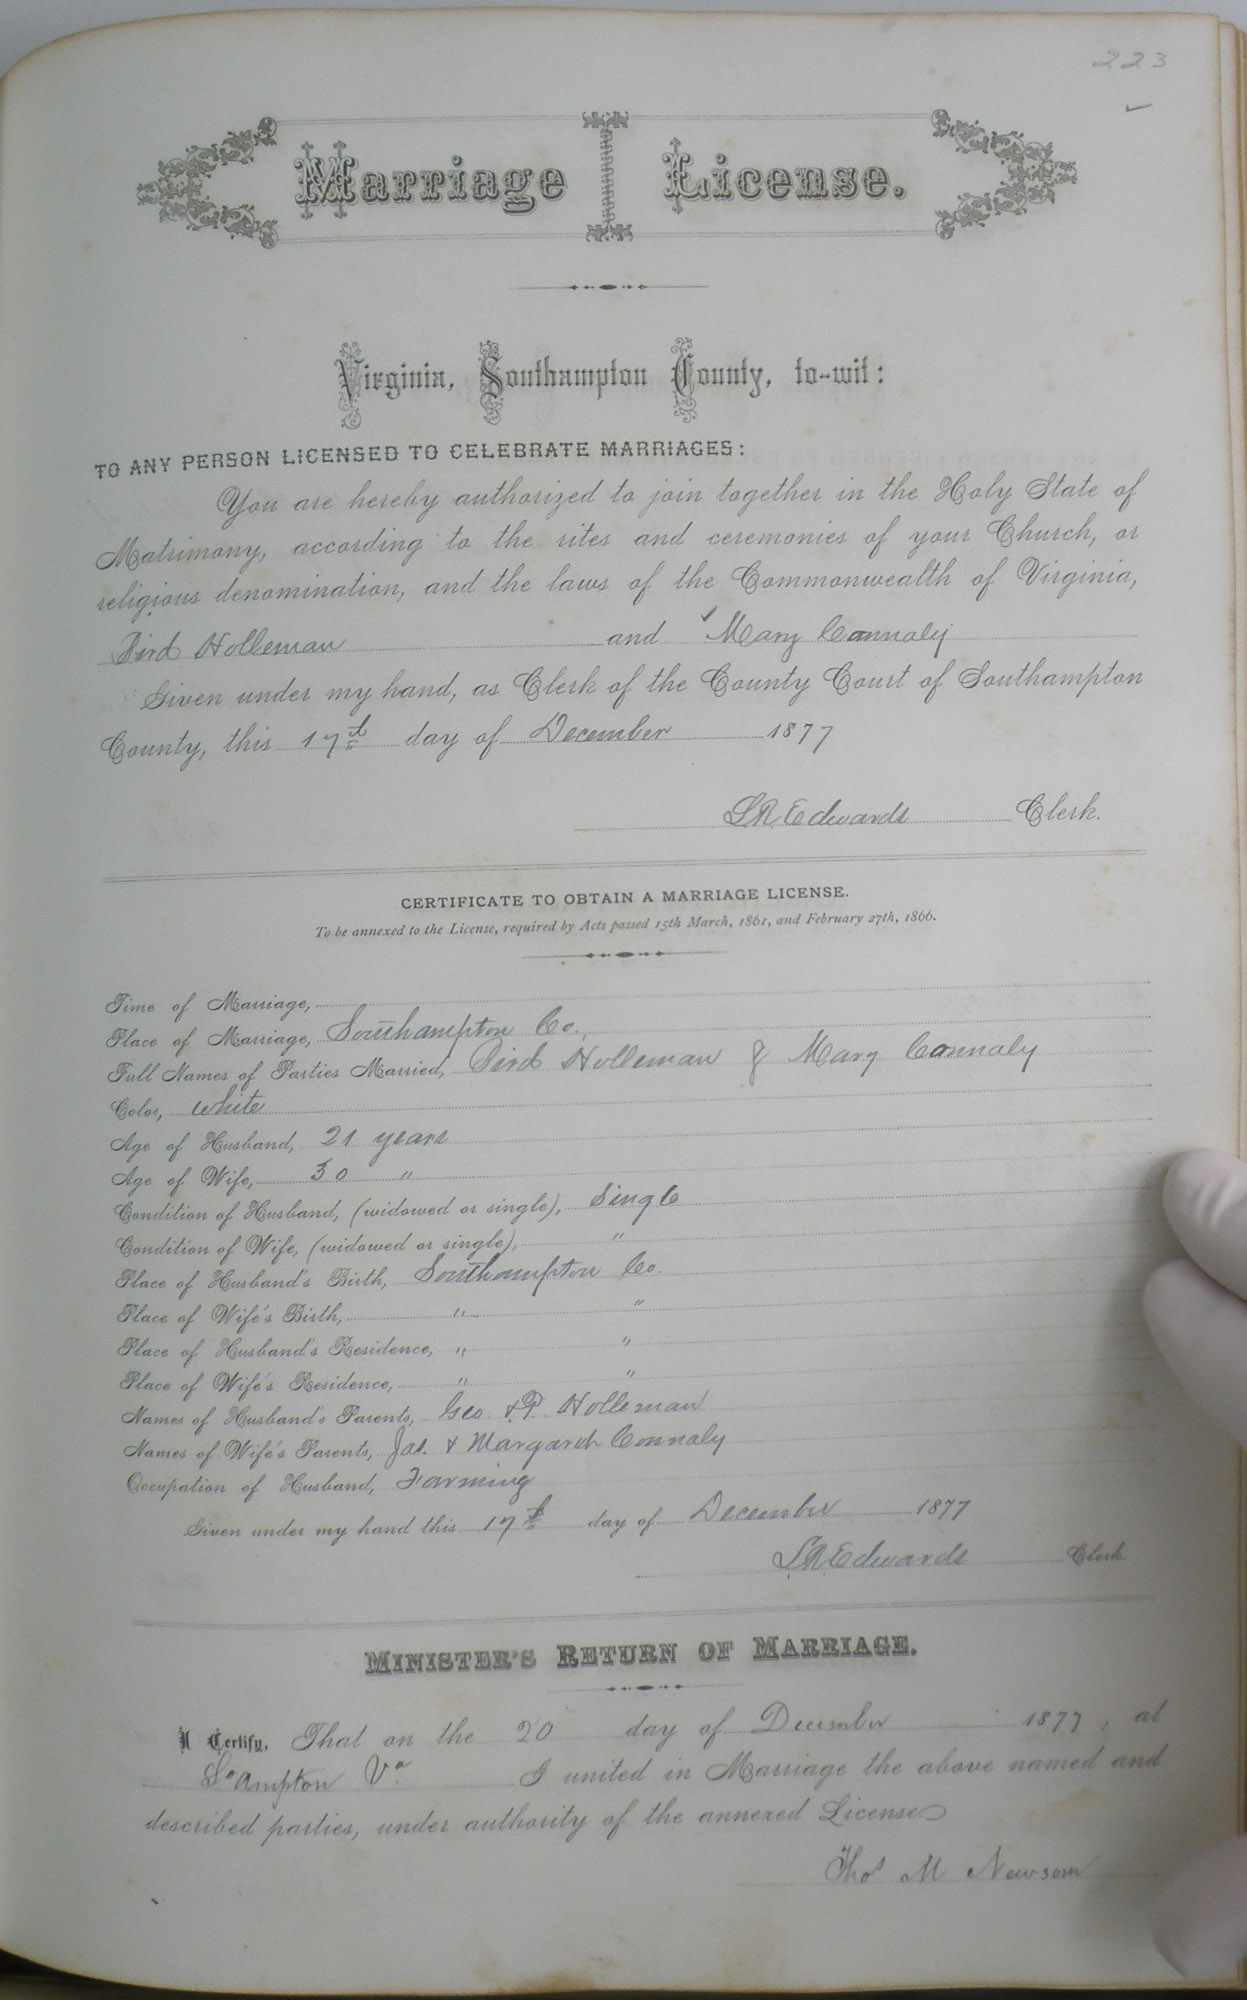 223
Marriage License.
Virginia, Southampton County, to-wit:
TO ANY PERSON LICENSED TO CELEBRATE MARRIAGES:
You are hereby authorized to join together in the Holy State of
Matrimony, according to the rites and ceremonies of your Church, or
religious denomination, and the laws of the Commonwealth of Virginia,
Bird Holleman and Mary Connaly
Given under my hand, as Clerk of the County Court of Southampton
County, this 17th day of December 1877
L R Edwards Clerk.
CERTIFICATE TO OBTAIN A MARRIAGE LICENSE.
To be annexed to the License, required by Acts passed 15th March, 1861, and February 27th, 1866.
Time of Marriage,
Place of Marriage, Southampton Co.
Full Names of Parties Married, Bird Holleman & Mary Connaly
Color, white
Age of Husband, 21 years
Age of Wife, 30 "
Condition of Husband, (widowed or single), Single
Condition of Wife, (widowed or single), "
Place of Husband's Birth, Southampton Co.
Place of Wife's Birth, " "
Place of Husband's Residence, " "
Place of Wife's Residence, " "
Names of Husband's Parents, Geo. & P. Holleman
Names of Wife's Parents, Jas. & Margaret Connaly
Occupation of Husband, Farming
Given under my hand this 17th day of December 1877
L R Edwards Clerk.
MINISTER'S RETURN OF MARRIAGE.
I Certify, That on the 20 day of December 1877, at
So ampton Va I united in Marriage the above named and
described parties, under authority of the annexed License
Thos M Newsom